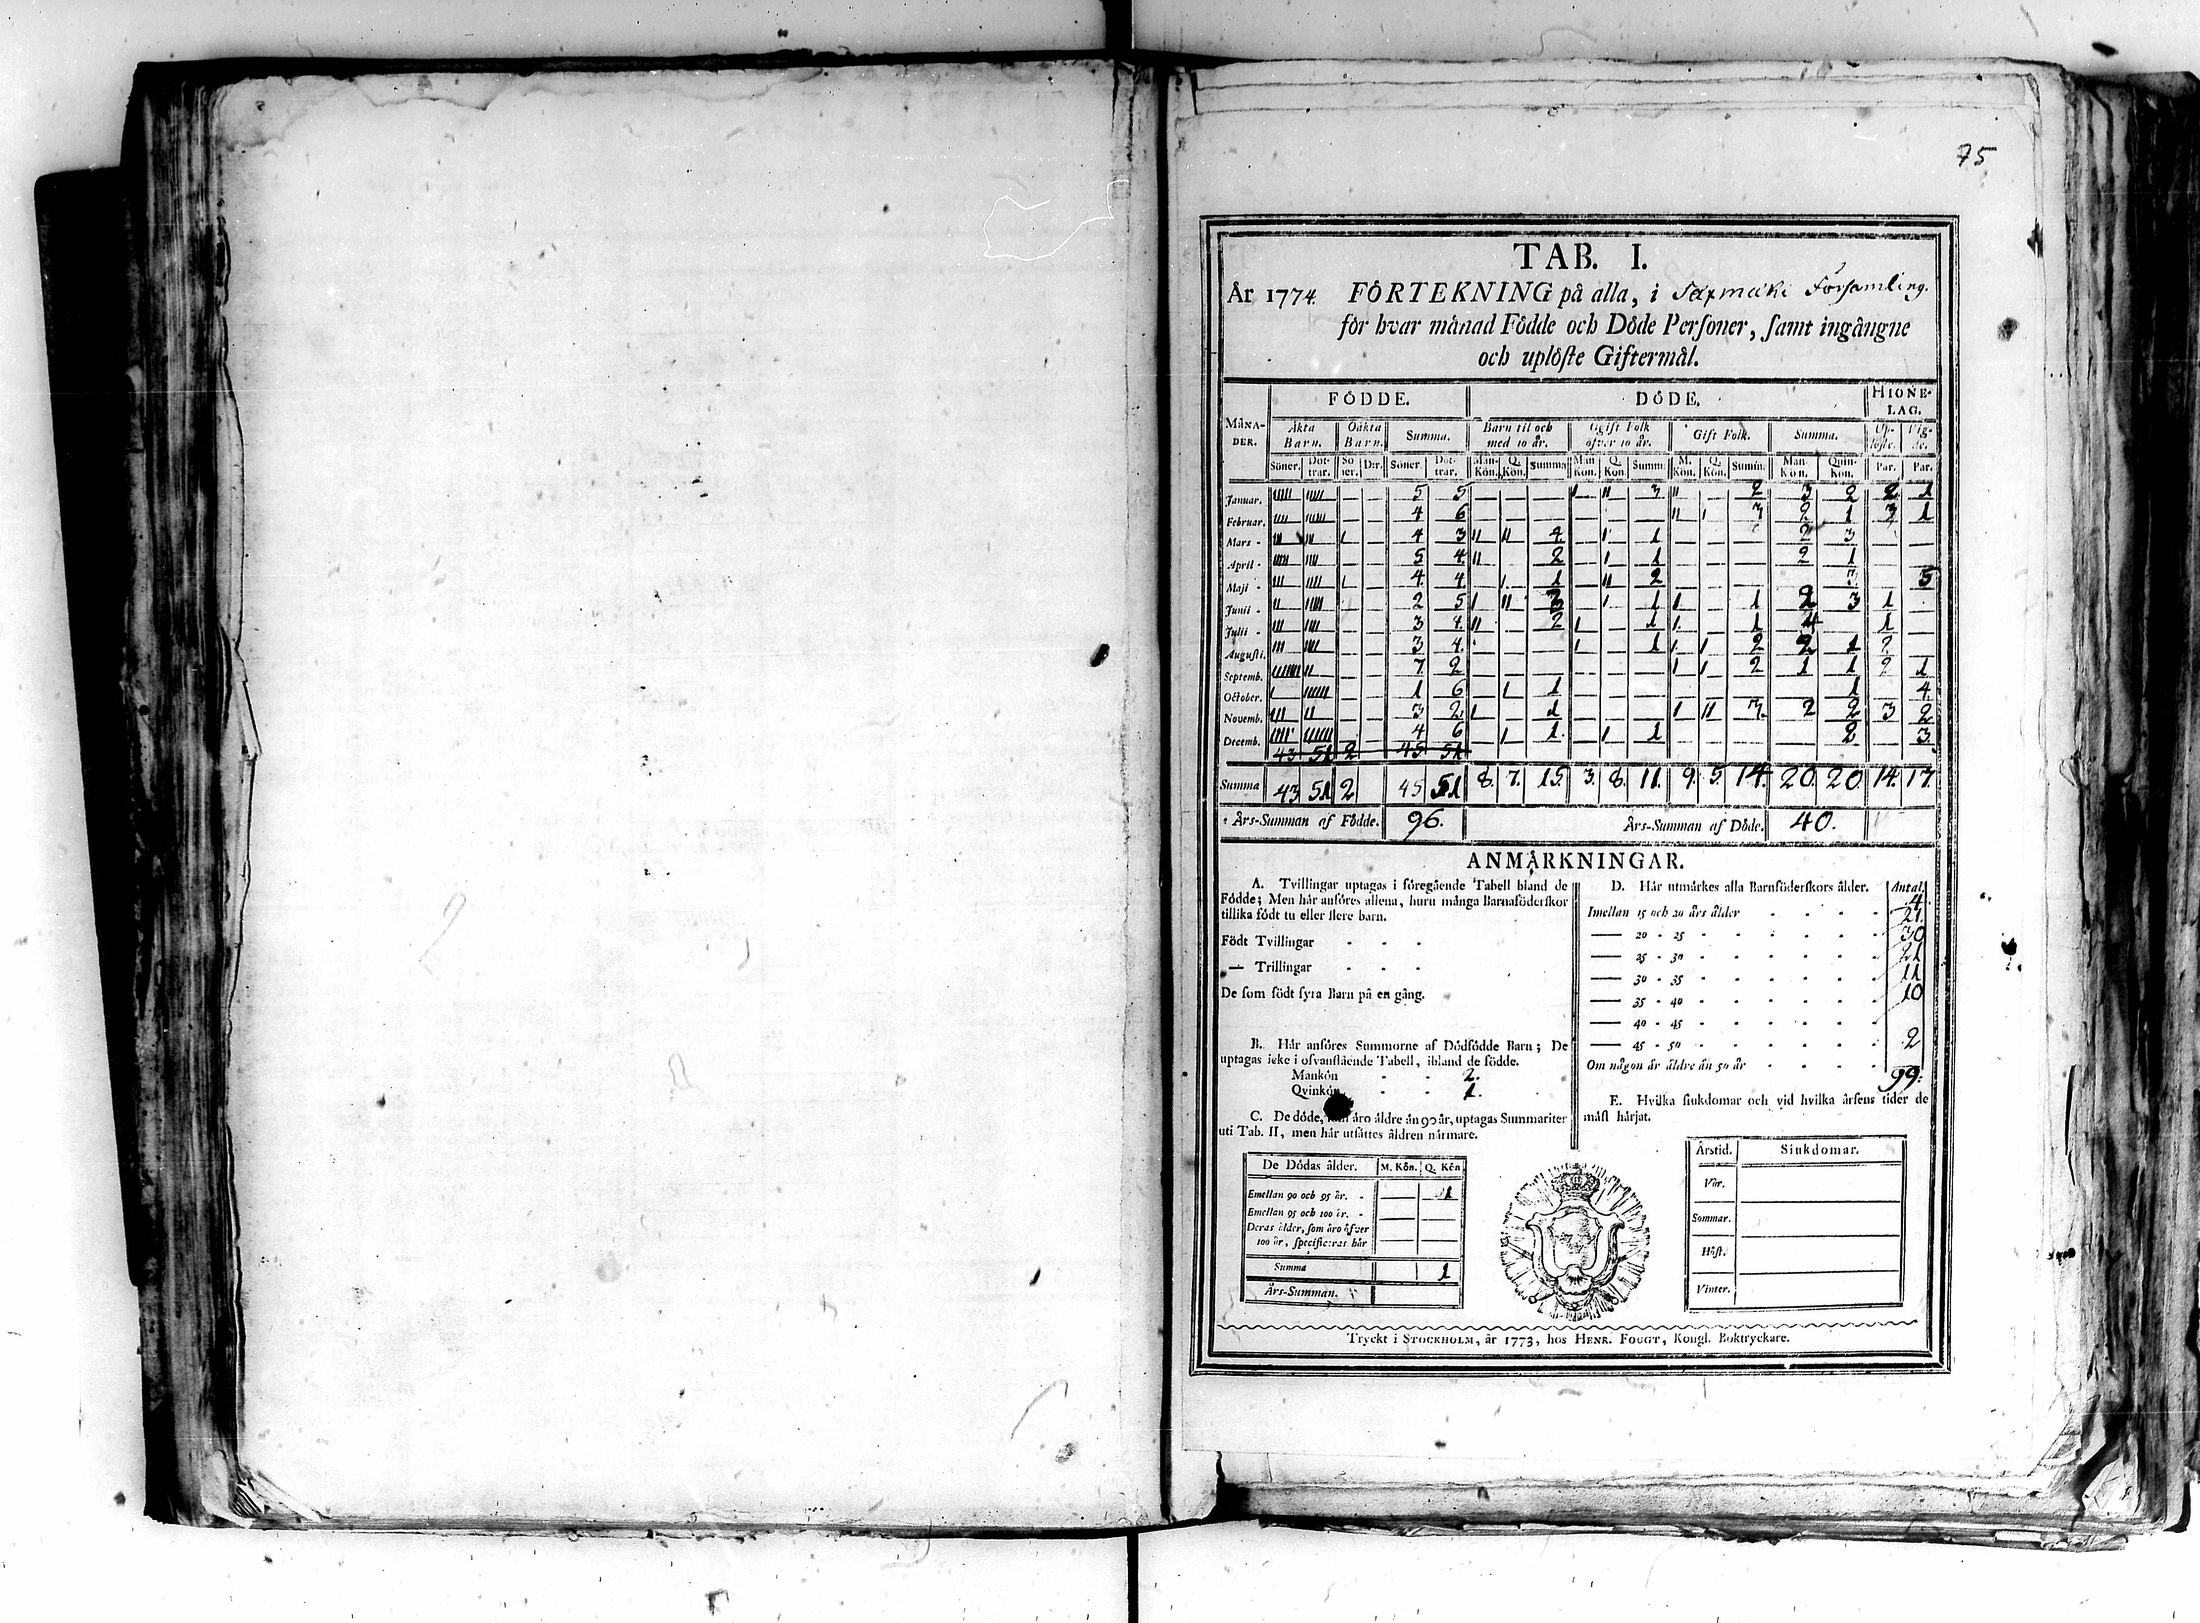 75
TAB. I.
År 1774. FÖRTEKNING på alla, i Församling.
för hvar månad Födde och Döde Perſoner, ſamt ingångne
och uplöſte Giftermål.
FÖDDE. DÖDE. HIONE-LAG.
MÅNA-DER. Äkta Barn. Oäkta Barn. Summa. Barn til och med 10 år. Ogift Folk öfver 10 år. Gift Folk. Summa. Up-löſte. Vig-de.
Söner. Döt-trar. Sö ner. Dtr. Söner Döt-trar. Män-Kön. Q. Kön. Summa Män Kön. Q. Kon Summ. M. Kön. Q. Kön. Sumiñ. Man. Kön. Quin-Kön. Par. Par.
Januar. 5 5 3 2 3 2 2 1
Februar. 4 6 3 2 1 3 1
Mars - 4 3 4 1 2 3
April - 5 4. 2 1 2 1
Maji - 4. 4. 1 2 3. 5
Junii - 2 5 3 1 1 2 3 1
Julii - 3 4. 2 1 1 4 1
Auguſti. 3 4. 1 2 2 1 2
Septemb. 7. 2 2 1 1 2 1
October. 1 6 1 1 4.
Novemb. 3 2 1 3. 2 2 3 2
Decemb. 4 6 1. 1 2 3.
43 51 2 45 51
Summa 43 51 2 45 51 8. 7. 15. 3. 8. 11. 9. 5. 14. 20. 20. 14. 17.
Års-Summan af Födde. 96. Års-Summan af Döde. 40.
ANMÄRKNINGAR.
A. Tvillingar uptagas i föregående Tabell bland de
Födde; Men här anföres allena, huru många Barnaföderſkor
tillika födt tu eller flere barn.
Födt Tvillingar - - -
— Trillingar - - -
De ſom födt fyra Barn på en gång.
B. Här anföres Summorne af Dödfödde Barn; De
uptagas icke i ofvanſtående Tabell, ibland de födde.
Mankön - - 2.
Qvinkön - - 1.
C. De döde, ſom äro äldre än 90 år, uptagas Summariter
uti Tab. II, men här utſättes åldren närmare.
De Dödas ålder. M. Kön. Q. Kön
Emellan 90 och 95 år. - 1
Emellan 95 och 100 år. -
Deras ålder, ſom äro öfver
100 år, ſpecificeras här
Summa 1
Års-Summan.
D. Här utmärkes alla Barnföderſkors ålder. Antal.
Imellan 15 och 20 års ålder 4.
— 20 - 25 21.
— 25 - 30 30
— 30 - 35 21
— 35 - 40 11
— 40 - 45 10
— 45 - 50 2
Om någon är äldre än 50 år
99.
E. Hvilka ſiukdomar och vid hvilka årſens tider de
mäſt härjat.
Årstid. Siukdomar.
Vår.
Sommar.
Höſt.
Vinter.
Tryckt i STOCKHOLM, år 1773, hos HENR. FOUGT, Kongl. Boktryckare.